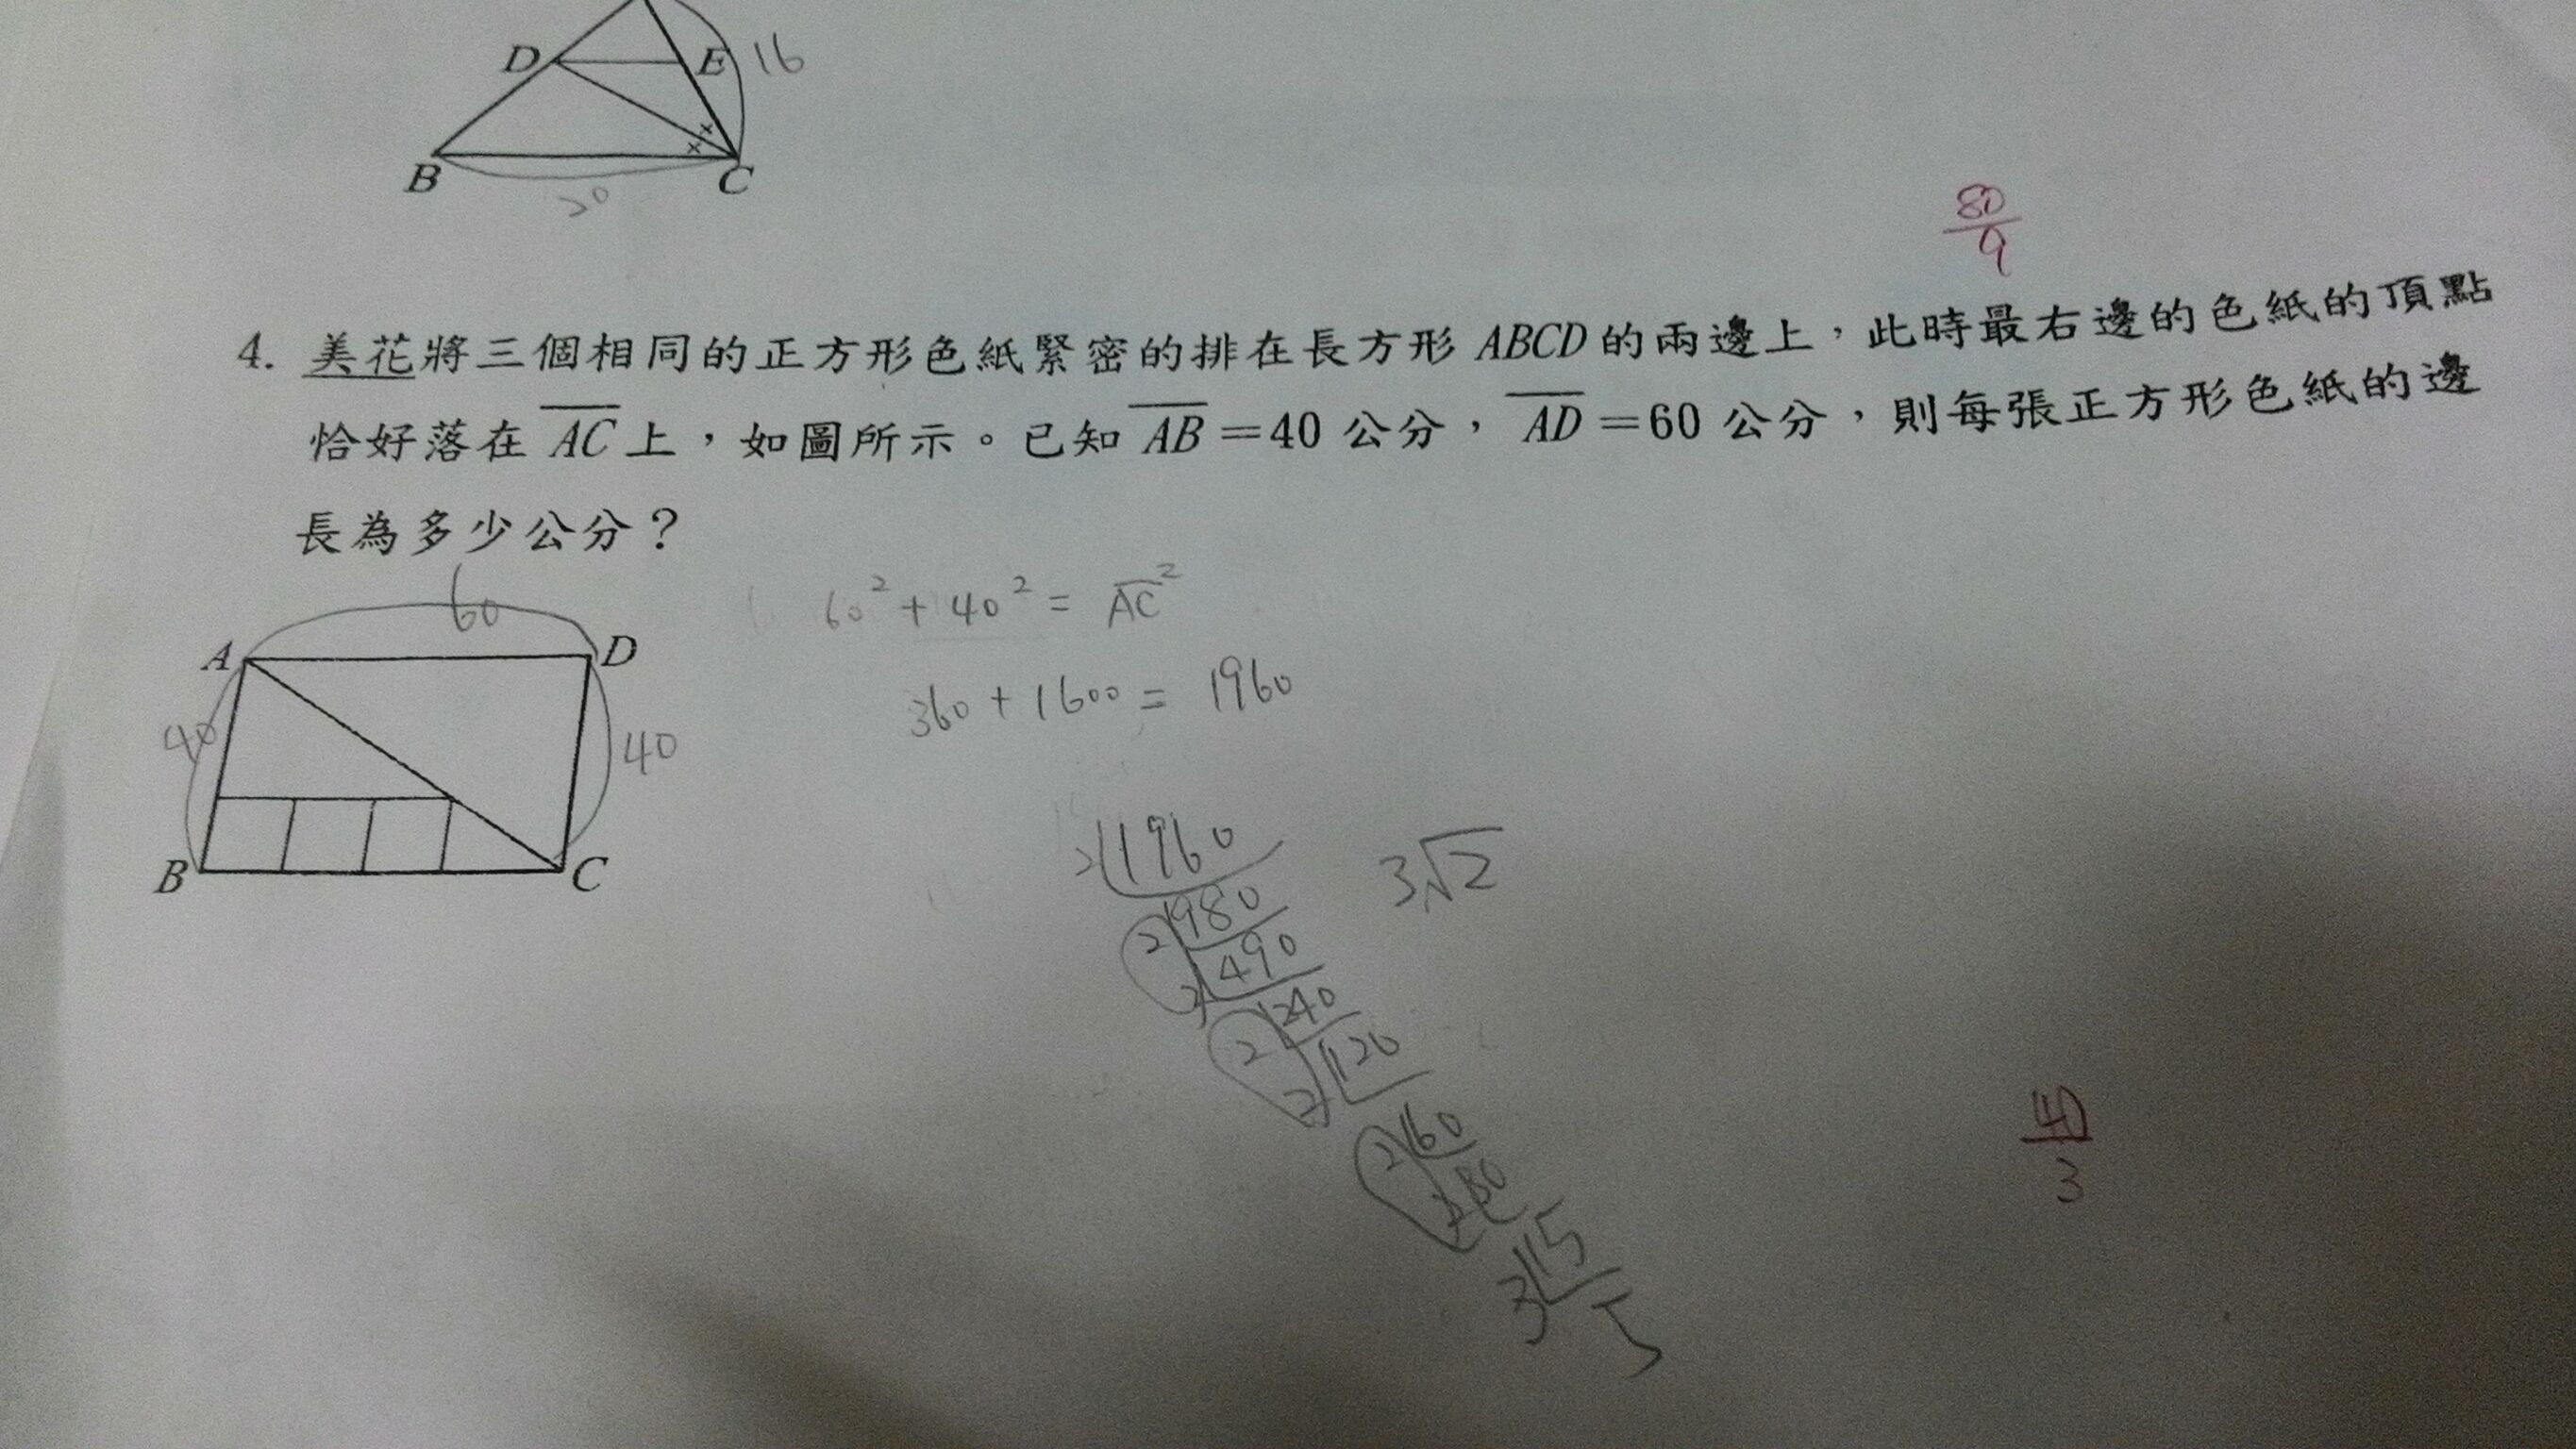 D
E
16
B
C
20
80
9
4. 美花將三個相同的正方形色紙緊密的排在長方形 ABCD 的兩邊上，此時最右邊的色紙的頂點
恰好落在 AC 上，如圖所示。已知 AB＝40 公分，AD＝60 公分，則每張正方形色紙的邊
長為多少公分？
60
A
D
40
40
B
C
60² + 40² = AC²
360 + 1600 = 1960
2 1960
3√2
2 980
2 490
2 240
2 120
2 60
2 30
3 15
5
40
3